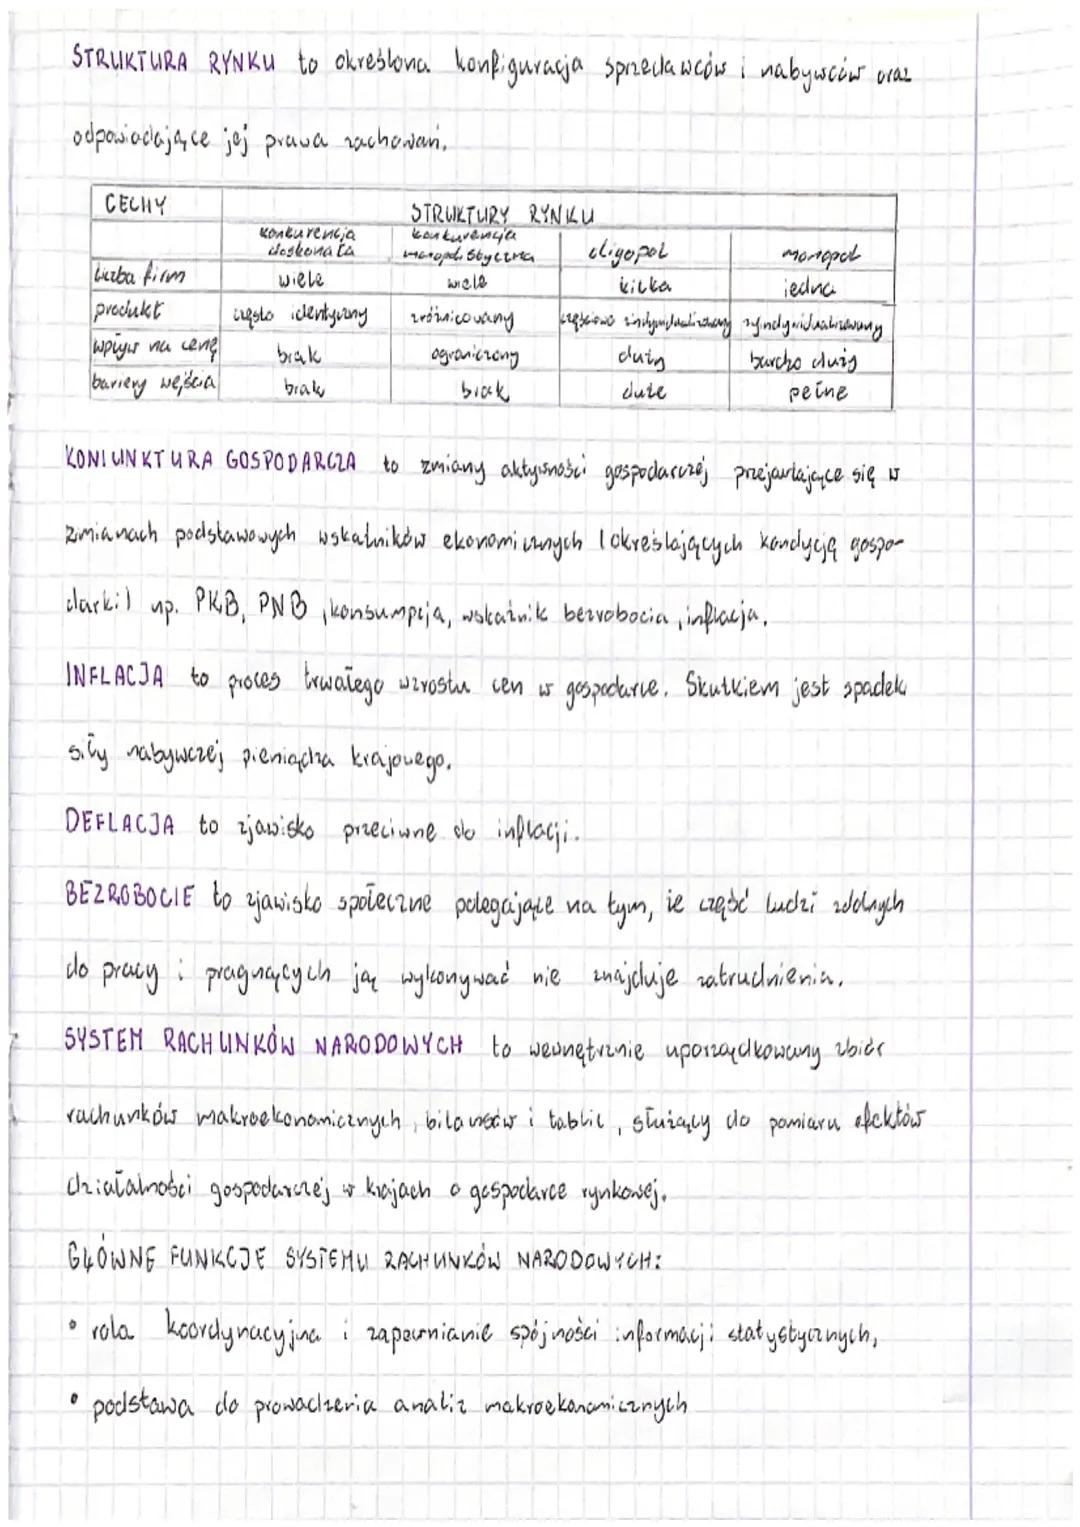 STRUKTURA RYNKU to określona konfiguracja sprzedawców i nabywców oraz
odpowiadające jej prawa zachowań.
CECHY STRUKTURY RYNKU
konkurencja doskonała konkurencja monopolistyczna oligopol monopol
liczba firm wiele wiele kilka jedna
produkt często identyczny zróżnicowany częściowo zindywidualizowany zyindywidualizowany
wpływ na cenę brak ograniczony duży bardzo duży
bariery wejścia brak brak duże pełne
KONIUNKTURA GOSPODARCZA to zmiany aktywności gospodarczej przejawiające się w
zmianach podstawowych wskaźników ekonomicznych (określających kondycję gospo-
darki) np. PKB, PNB, konsumpcja, wskaźnik bezrobocia, inflacja.
INFLACJA to proces trwałego wzrostu cen w gospodarce. Skutkiem jest spadek
siły nabywczej pieniądza krajowego.
DEFLACJA to zjawisko przeciwne do inflacji.
BEZROBOCIE to zjawisko społeczne polegające na tym, że część ludzi zdolnych
do pracy i pragnących ją wykonywać nie znajduje zatrudnienia.
SYSTEM RACHUNKÓW NARODOWYCH to wewnętrznie uporządkowany zbiór
rachunków makroekonomicznych, bilansów i tablic, służący do pomiaru efektów
działalności gospodarczej w krajach o gospodarce rynkowej.
GŁÓWNE FUNKCJE SYSTEMU RACHUNKÓW NARODOWYCH:
• rola koordynacyjna i zapewnianie spójności informacji statystycznych,
• podstawa do prowadzenia analiz makroekonomicznych